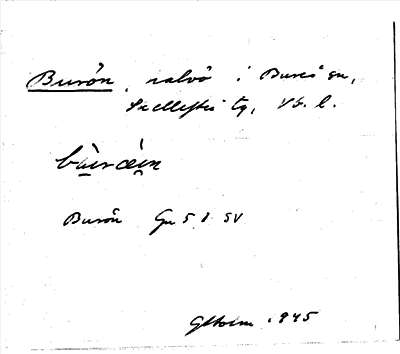 Burön, halvö i Bureå sn,
Skellefteå tg, Vb. l.
bùræ̀n
Burön Gu 5 8 SV
GHolm 1945